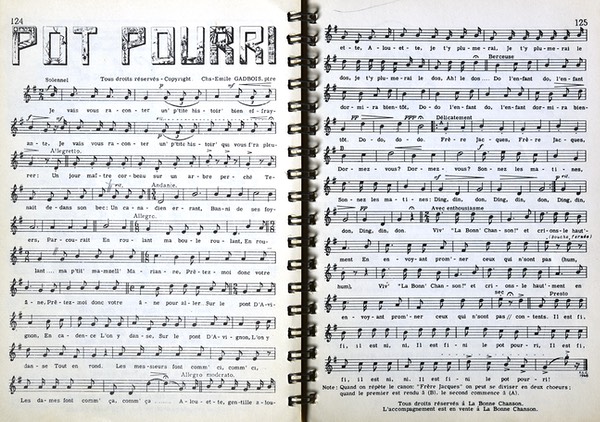 124
POT POURRI
Solennel Tous droits réservés - Copyright Chs-Emile GADBOIS, ptre
je vais vous ra - con - ter un' p'tite his - toir' bien ef - fray-
an - te. je vais vous ra - con - ter un' p'tite his - toir' qui vous f'ra pleu-
Allegretto.
rer: Un jour maî - tre cor - beau sur un ar - bre per - ché Te-
Andante.
nait de - dans son bec: Un ca - na - di - en er - rant, Ban - ni de ses foy-
Allegro.
ers, Par - cou - rait En rou - lant ma bou - le rou - lant, En rou-
lant.... ma p'tit' ma - mzell' Ma - ria - ne, Prê - tez - moi donc votre
â - ne, Prê - tez - moi donc votre â - ne pour al - ler Sur le pont D'A - vi-
gnon, En ca - den - ce L'on y dan - se, Sur le pont D'A - vi - gnon, L'on y
dan - se Tout en rond. Les mes - sieurs font comm' ci, comm' ci,
Allegro moderato.
Les da - mes font comm' ça, comm' ça .... A - lou - et - te, gen - tille a - lou-
125
et - te, A - lou - et - te, je t'y plu - me - rai, je t'y plu - me - rai le
Berceuse
dos, je t'y plu - me - rai le dos, Ah! le dos.... Do l'en - fant do, l'en - fant
dor - mi - ra bien - tôt, Do l'en - fant do, l'en - fant dor - mi - ra bien-
pp ppp Délicatement
tôt. Do, do, do. Frè - re Jac - ques, Frè - re Jac - ques,
B
Dor - mez - vous? Dor - mez - vous? Son - nez les ma - ti - nes,
Son - nez les ma - ti - nes: Ding, din, don, Ding, din, don, Ding, din,
pp Avec enthousiasme
don, Ding, din, don. Viv' "La Bonn' Chan - son!" et cri - ons - le haut-
(bouche fermée)
ment En en - voy - ant prom' - ner ceux qui n'sont pas (hum,
hum), Viv' "La Bonn' Chan - son!" et cri - ons - le haut - ment en
sec Presto
en - voy - ant prom' - ner ceux qui n'sont pas // con - tents. Il est fi,
fi, il est ni, ni, Il est fi - ni le pot pour - ri, Il est fi,
fi, il est ni, ni. Il est fi - ni le pot pour - ri!
Note: Quand on répète le canon: "Frère Jacques" on peut se diviser en deux chœurs;
quand le premier est rendu à (B), le second commence à (A).
Tous droits réservés à La Bonne Chanson.
L'accompagnement est en vente à La Bonne Chanson.